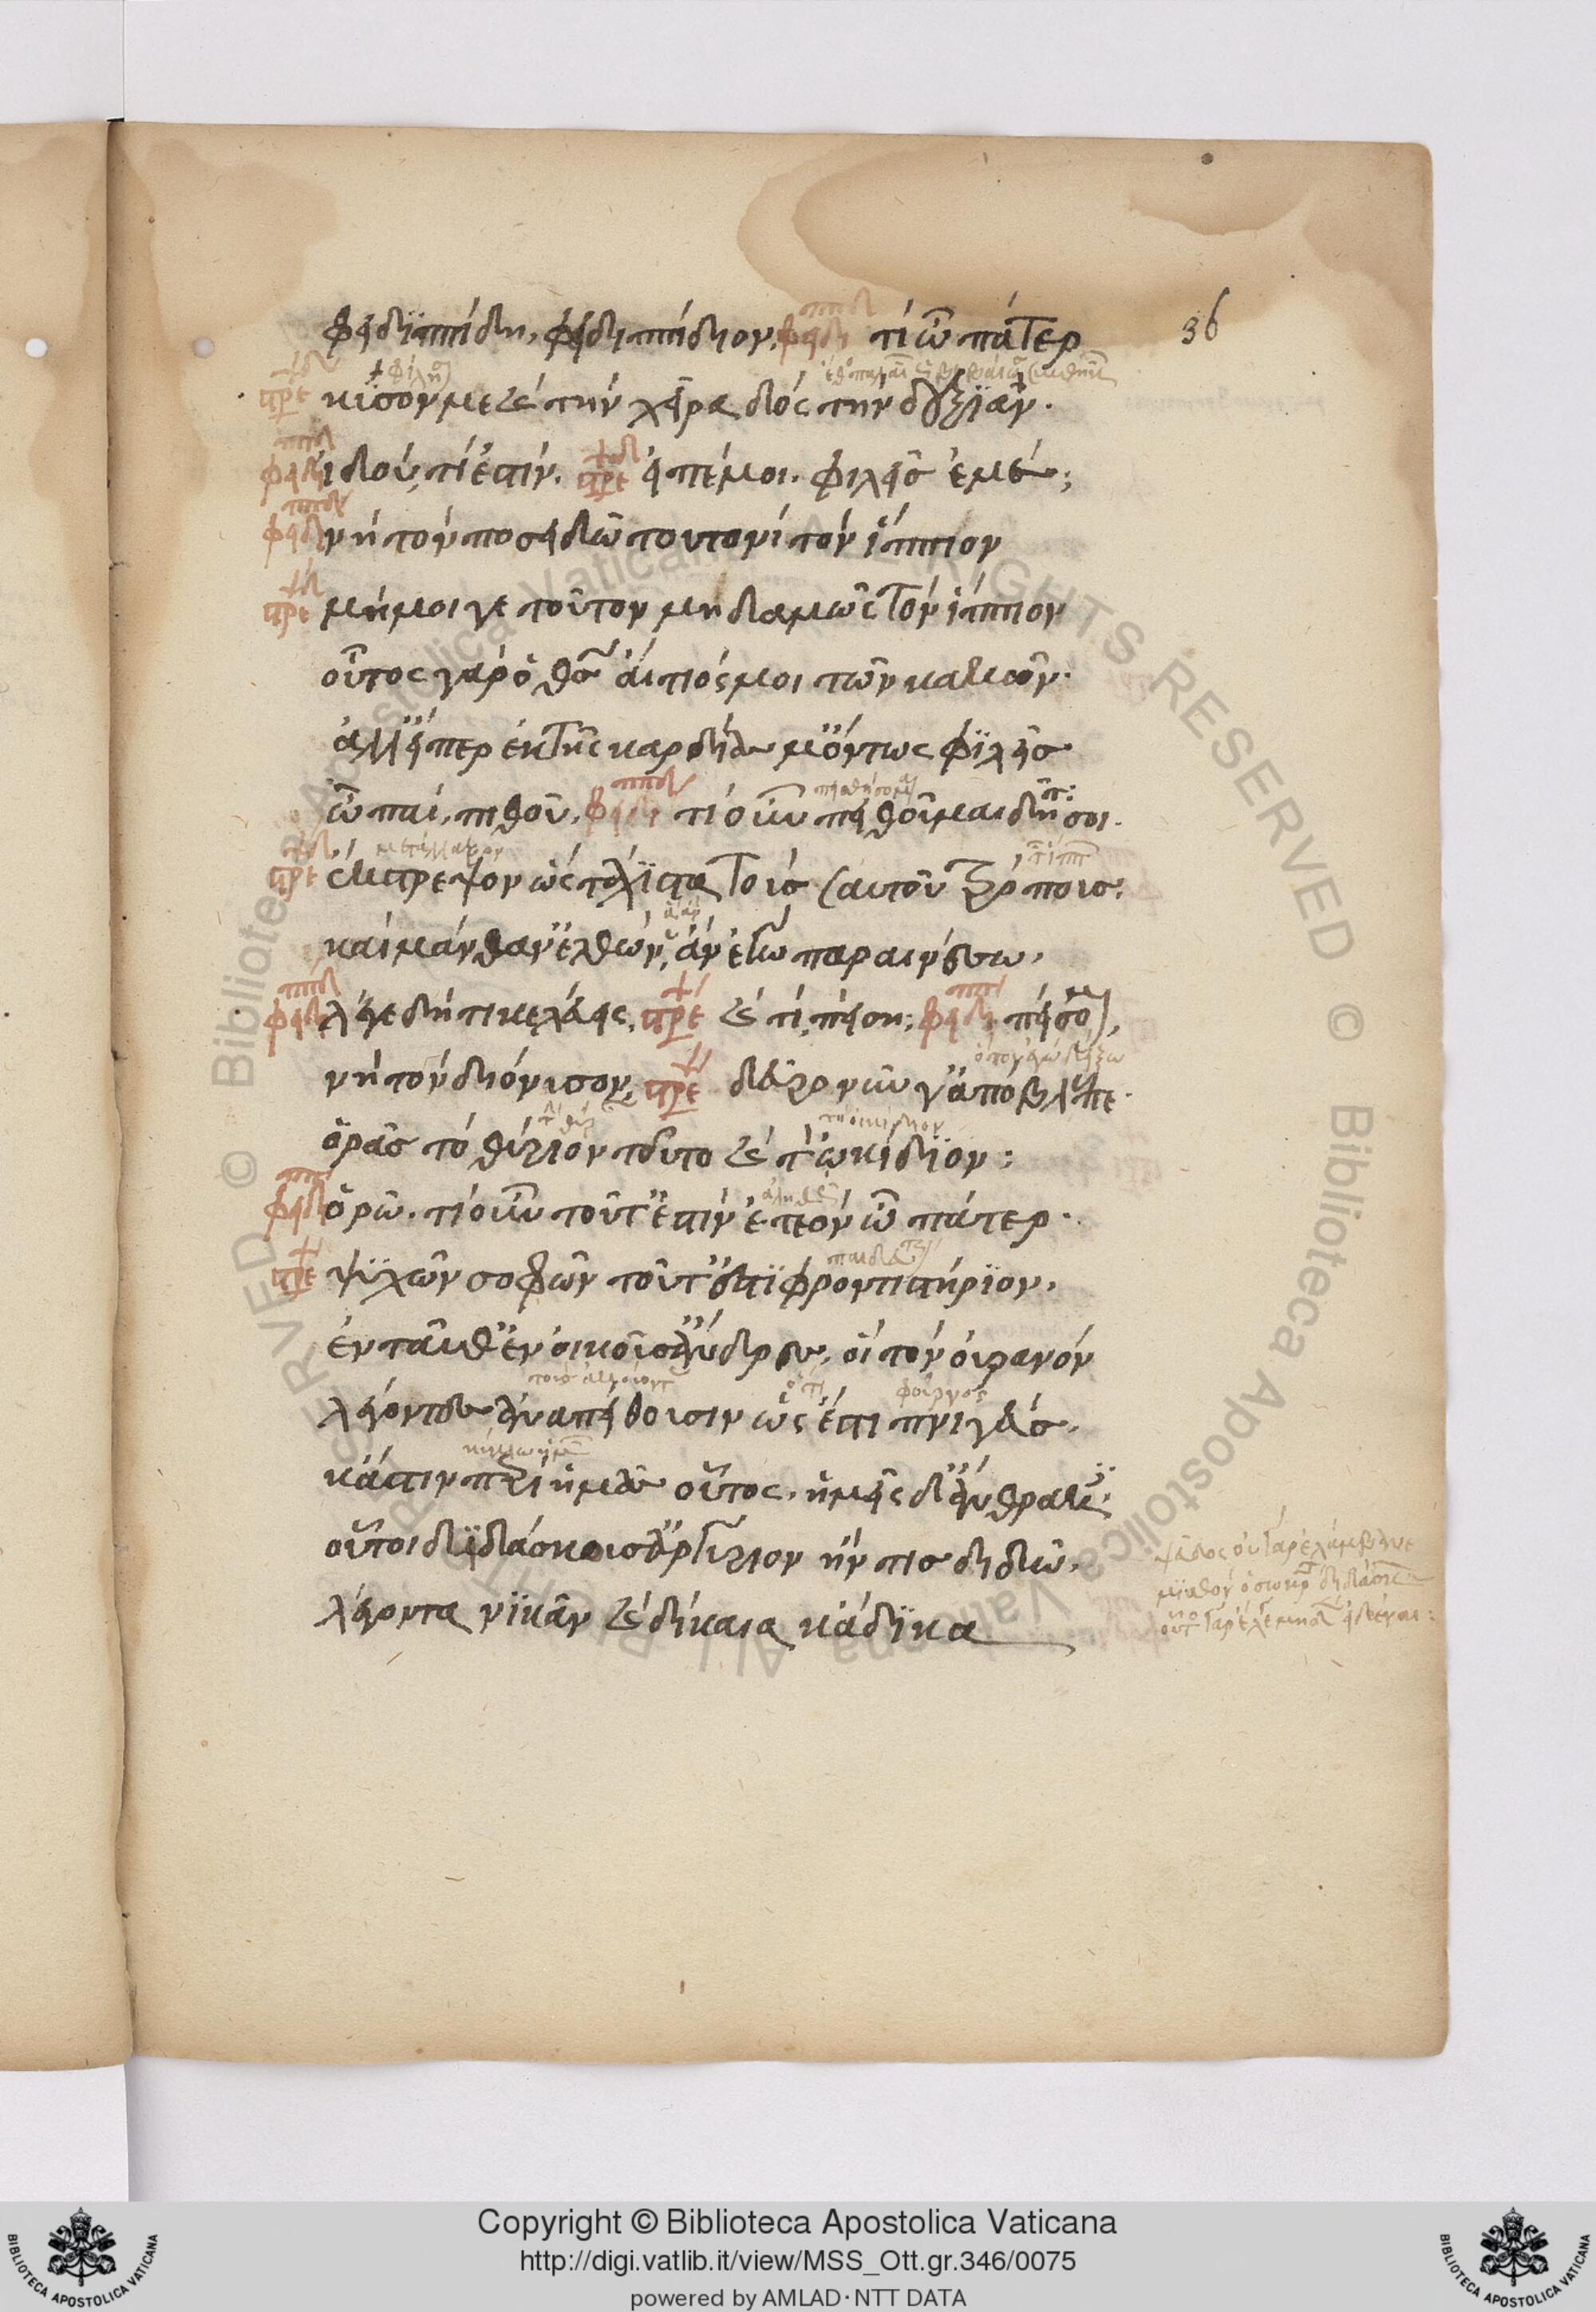 φειδϊππίδη, φειδιππίδιον. φειδ τί ὦ πάτερ
36
κῦσόν με καὶ τὴν χεῖρα δὸς τὴν δεξϊάν.
ἰδού, τί ἐστιν. στρε εἰπέ μοι. φιλεῖς ἐμέ;
νὴ τὸν ποσειδῶ τουτονὶ τὸν ἵππιον
μή μοι γε τοῦτον μηδαμῶς τὸν ἵππιον
οὗτος γὰρ ὁ θεὸς αἴτιός μοι τῶν κακῶν.
ἀλλ' εἴπερ ἐκ τῆς καρδίας μ' ὄντως φϊλεῖς
ὦ παῖ, πιθοῦ. φειδ τί οὖν πείθωμαι δῆτά σοι.
ἔκστρεψον ὡς τάχϊστα τοὺς σαυτοῦ τρόπους.
καὶ μάνθαν' ἐλθὼν, ἃν ἐγὼ παραινέσω.
λέγε δὴ τί κελεύεις, στρε καί τι πείσῃ; φειδ πείσομαι,
νὴ τὸν διόνισον, στρε δεῦρο νῦν γ' ἀπόβλεπε.
ὁρᾷς τὸ θύριον τοῦτο καὶ τ' ὠκίδϊον;
ὁρῶ. τί οὖν τοῦτ' ἐστὶν ἐτεὸν ὦ πάτερ.
ψϋχῶν σοφῶν τοῦτ' ἐστὶ φροντιστήρϊον.
ἐνταῦθ' ἐνοικοῦσ' ἄνδρες, οἳ τὸν οὐρανὸν
λέγοντες ἀναπείθουσιν ὡς ἔστι πνιγεύς.
κἄστιν περὶ ἡμᾶς οὗτος. ἡμεῖς δ' ἄνθρακες.
οὗτοι δϊδάσκουσ' ἀργύριον ἤν τις διδῷ.
λέγοντα νϊκᾶν καὶ δίκαια κἄδϊκα
Copyright © Biblioteca Apostolica Vaticana
http://digi.vatlib.it/view/MSS_Ott.gr.346/0075
powered by AMLAD·NTT DATA